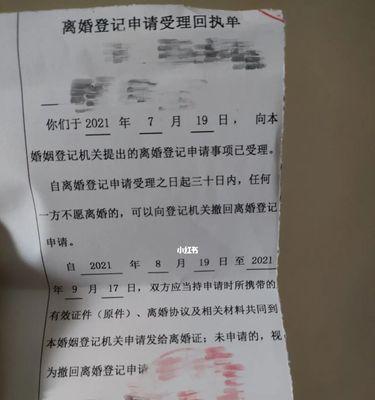 离婚登记申请受理回执单
你们于 2021 年 7 月 19 日，向本
婚姻登记机关提出的离婚登记申请事项已受理。
自离婚登记申请受理之日起三十日内，任何
一方不愿离婚的，可以向登记机关撤回离婚登记
申请。
小红书
自 2021 年 8 月 19 日至 2021
年 9 月 17 日，双方应当持申请时所携带的
有效证件（原件）、离婚协议及相关材料共同到
本婚姻登记机关申请发给离婚证；未申请的，视
为撤回离婚登记申请